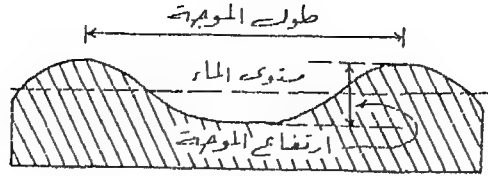 طول الموجة
مستوى الماء
ارتفاع الموجة